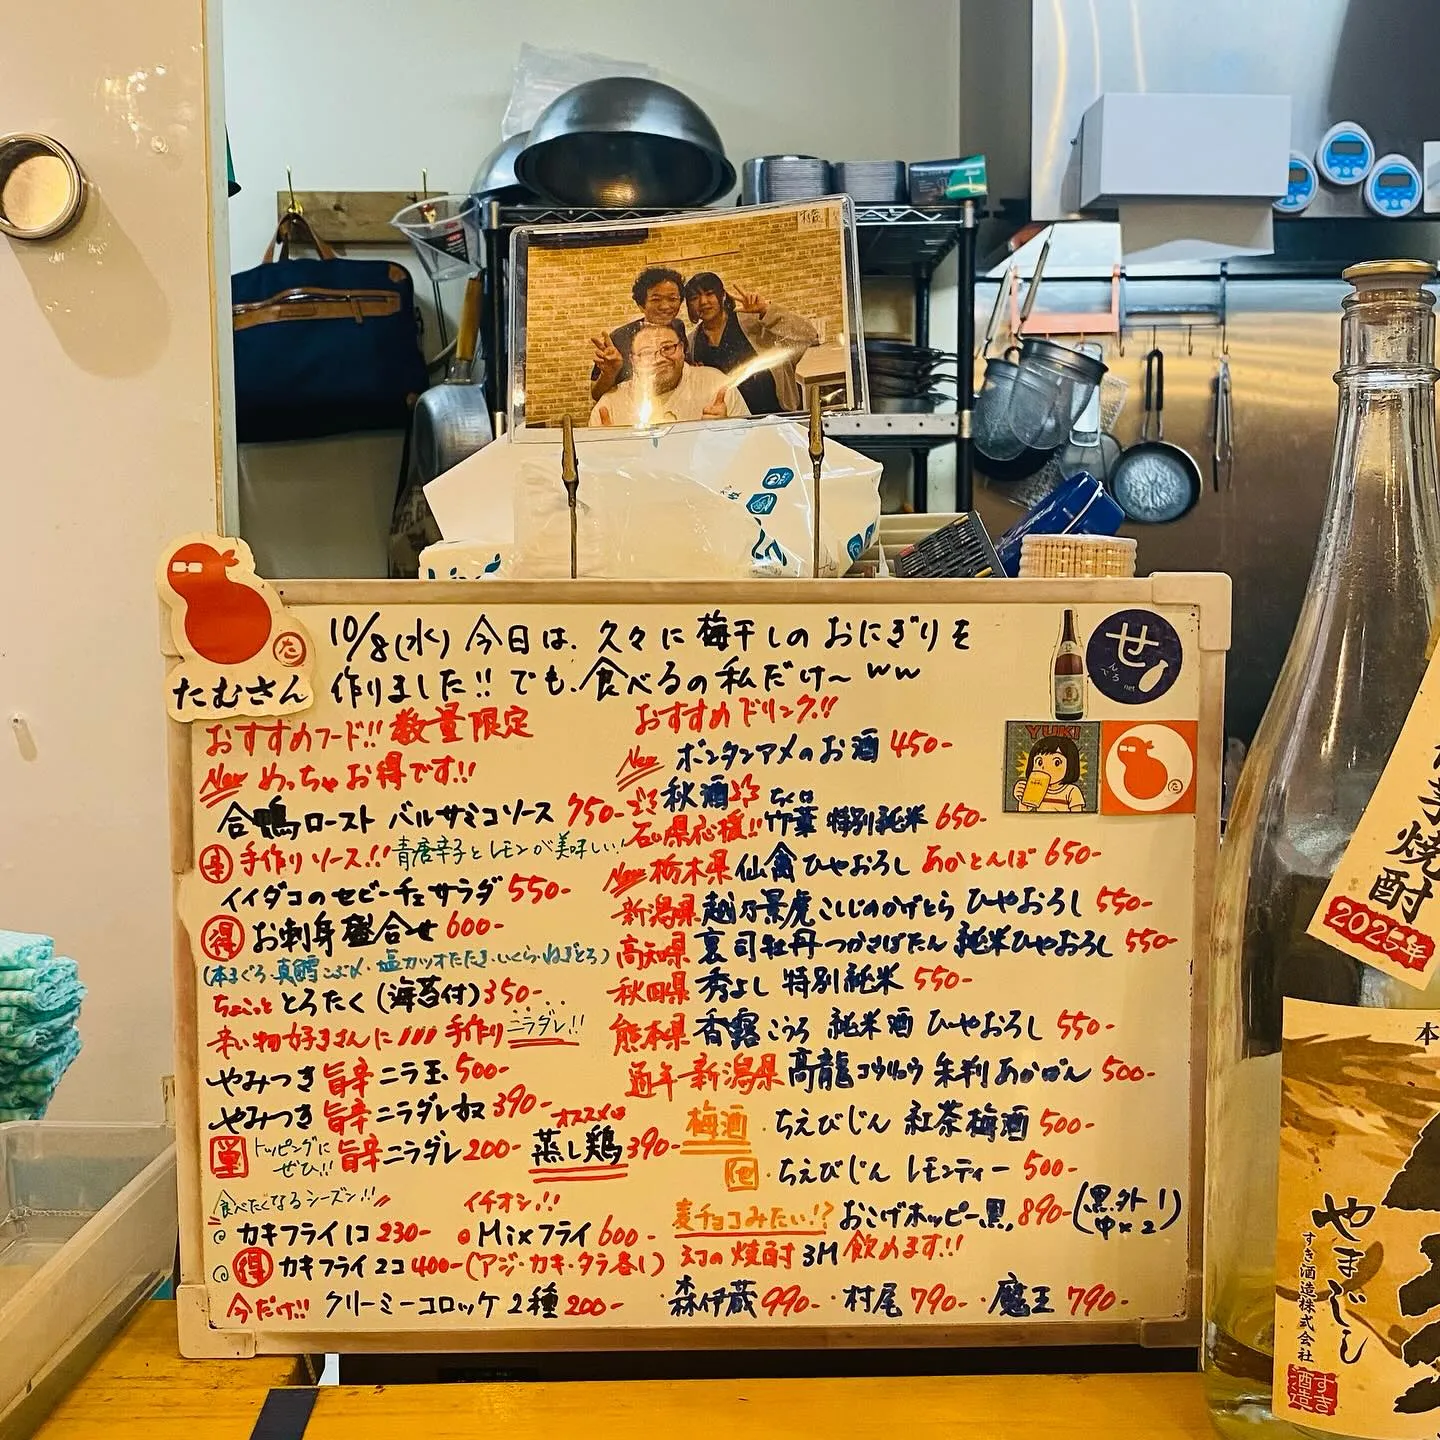 たむさん
10/8(水) 今日は、久々に梅干しのおにぎりを
作りました!! でも、食べるの私だけ〜ww
おすすめフード!! 数量限定
New めっちゃお得です!!
合鴨ロースト バルサミコソース 750-
手作りソース!! 青唐辛子とレモンが美味しい!
イイダコのセビーチェサラダ 550-
得 お刺身盛合せ 600-
(本まぐろ・真鯛こぶ〆・塩カツオたたき・いくら・ねぎとろ)
ちょこっと とろたく (海苔付) 350-
辛い物好きさんに!!! 手作りニラダレ!!
やみつき 旨辛 ニラ玉 500-
やみつき 旨辛 ニラダレ奴 390-
トッピングにぜひ!! 旨辛ニラダレ 200-
オススメは
蒸し鶏 390-
食べたくなるシーズン!!!
カキフライ1コ 230-
得 カキフライ2コ 400-
イチオシ!!
Mixフライ 600-
(アジ・カキ・タラ巻し)
今だけ!! クリーミーコロッケ2種 200-
おすすめドリンク!!
New ボンタンアメのお酒 450-
秋酒
石川県応援!! 竹葉 ちくは 特別純米 650-
New 栃木県 仙禽 ひやおろし あかとんぼ 650-
新潟県 越乃景虎 こしじのかげとら ひやおろし 550-
高知県 司牡丹 つかさぼたん 純米ひやおろし 550-
秋田県 秀よし 特別純米 550-
熊本県 香露 こうろ 純米酒 ひやおろし 550-
通年 新潟県 高龍 コウリュウ 朱判 あかばん 500-
梅酒 ・ちえびじん 紅茶梅酒 500-
他 ・ちえびじん レモンティー 500-
麦チョコみたい!? おこげホッピー黒 890- (黒.外1 中×2)
幻の焼酎 3M 飲めます!!
・森伊蔵 990- ・村尾 790- ・魔王 790-
せ
んべろ
net
YUKI
芋焼酎
2025年
やまじし
すき酒造株式会社
すき
酒造
本